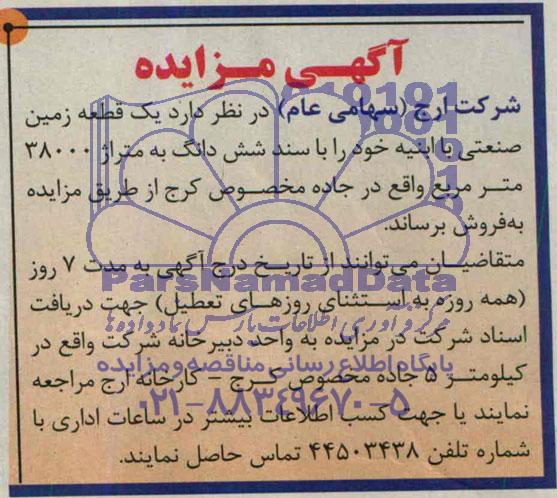 آگهی مزایده
شرکت ارج (سهامی عام) در نظر دارد یک قطعه زمین
صنعتی با ابنیه خود را با سند شش دانگ به متراژ ۳۸۰۰۰
متر مربع واقع در جاده مخصوص کرج از طریق مزایده
به‌فروش برساند.
متقاضیان می‌توانند از تاریخ درج آگهی به مدت ۷ روز
ParsNamadData
(همه روزه به استثنای روزهای تعطیل) جهت دریافت
مرکز فرآوری اطلاعات پارس نماد داده‌ها
اسناد شرکت در مزایده به واحد دبیرخانه شرکت واقع در
پایگاه اطلاع رسانی مناقصه و مزایده
کیلومتر ۵ جاده مخصوص کرج - کارخانه ارج مراجعه
۰۲۱-۸۸۳۴۹۶۷۰-۵
نمایند یا جهت کسب اطلاعات بیشتر در ساعات اداری با
شماره تلفن ۴۴۵۰۳۴۳۸ تماس حاصل نمایند.